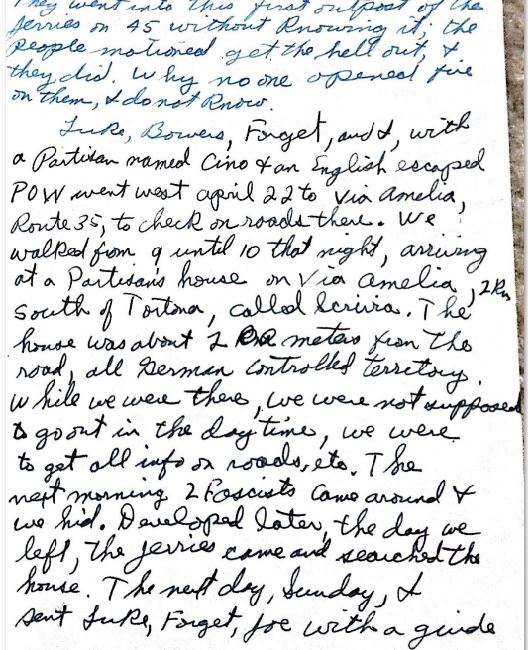 They went into this first outpost of the
Jerries on 45 without knowing it; the
people motioned get the hell out, &
they did. Why no one opened fire
on them, I do not know.
Luke, Bowers, Forget, and I, with
a Partisan named Cino & an English escaped
POW went west april 22 to Via Amelia,
Route 35, to check on roads there. We
walked from 9 until 10 that night, arriving
at a Partisan's house on Via Amelia, 2 Km
south of Tortona, called Scrivia. The
house was about 2 meters from the
road, all German controlled territory.
While we were there, we were not supposed
to go out in the daytime, we were
to get all info on roads, etc. The
next morning 2 Fascists came around &
we hid. Developed later, the day we
left, the Jerries came and searched the
house. The next day, Sunday, I
sent Luke, Forget, Joe with a guide